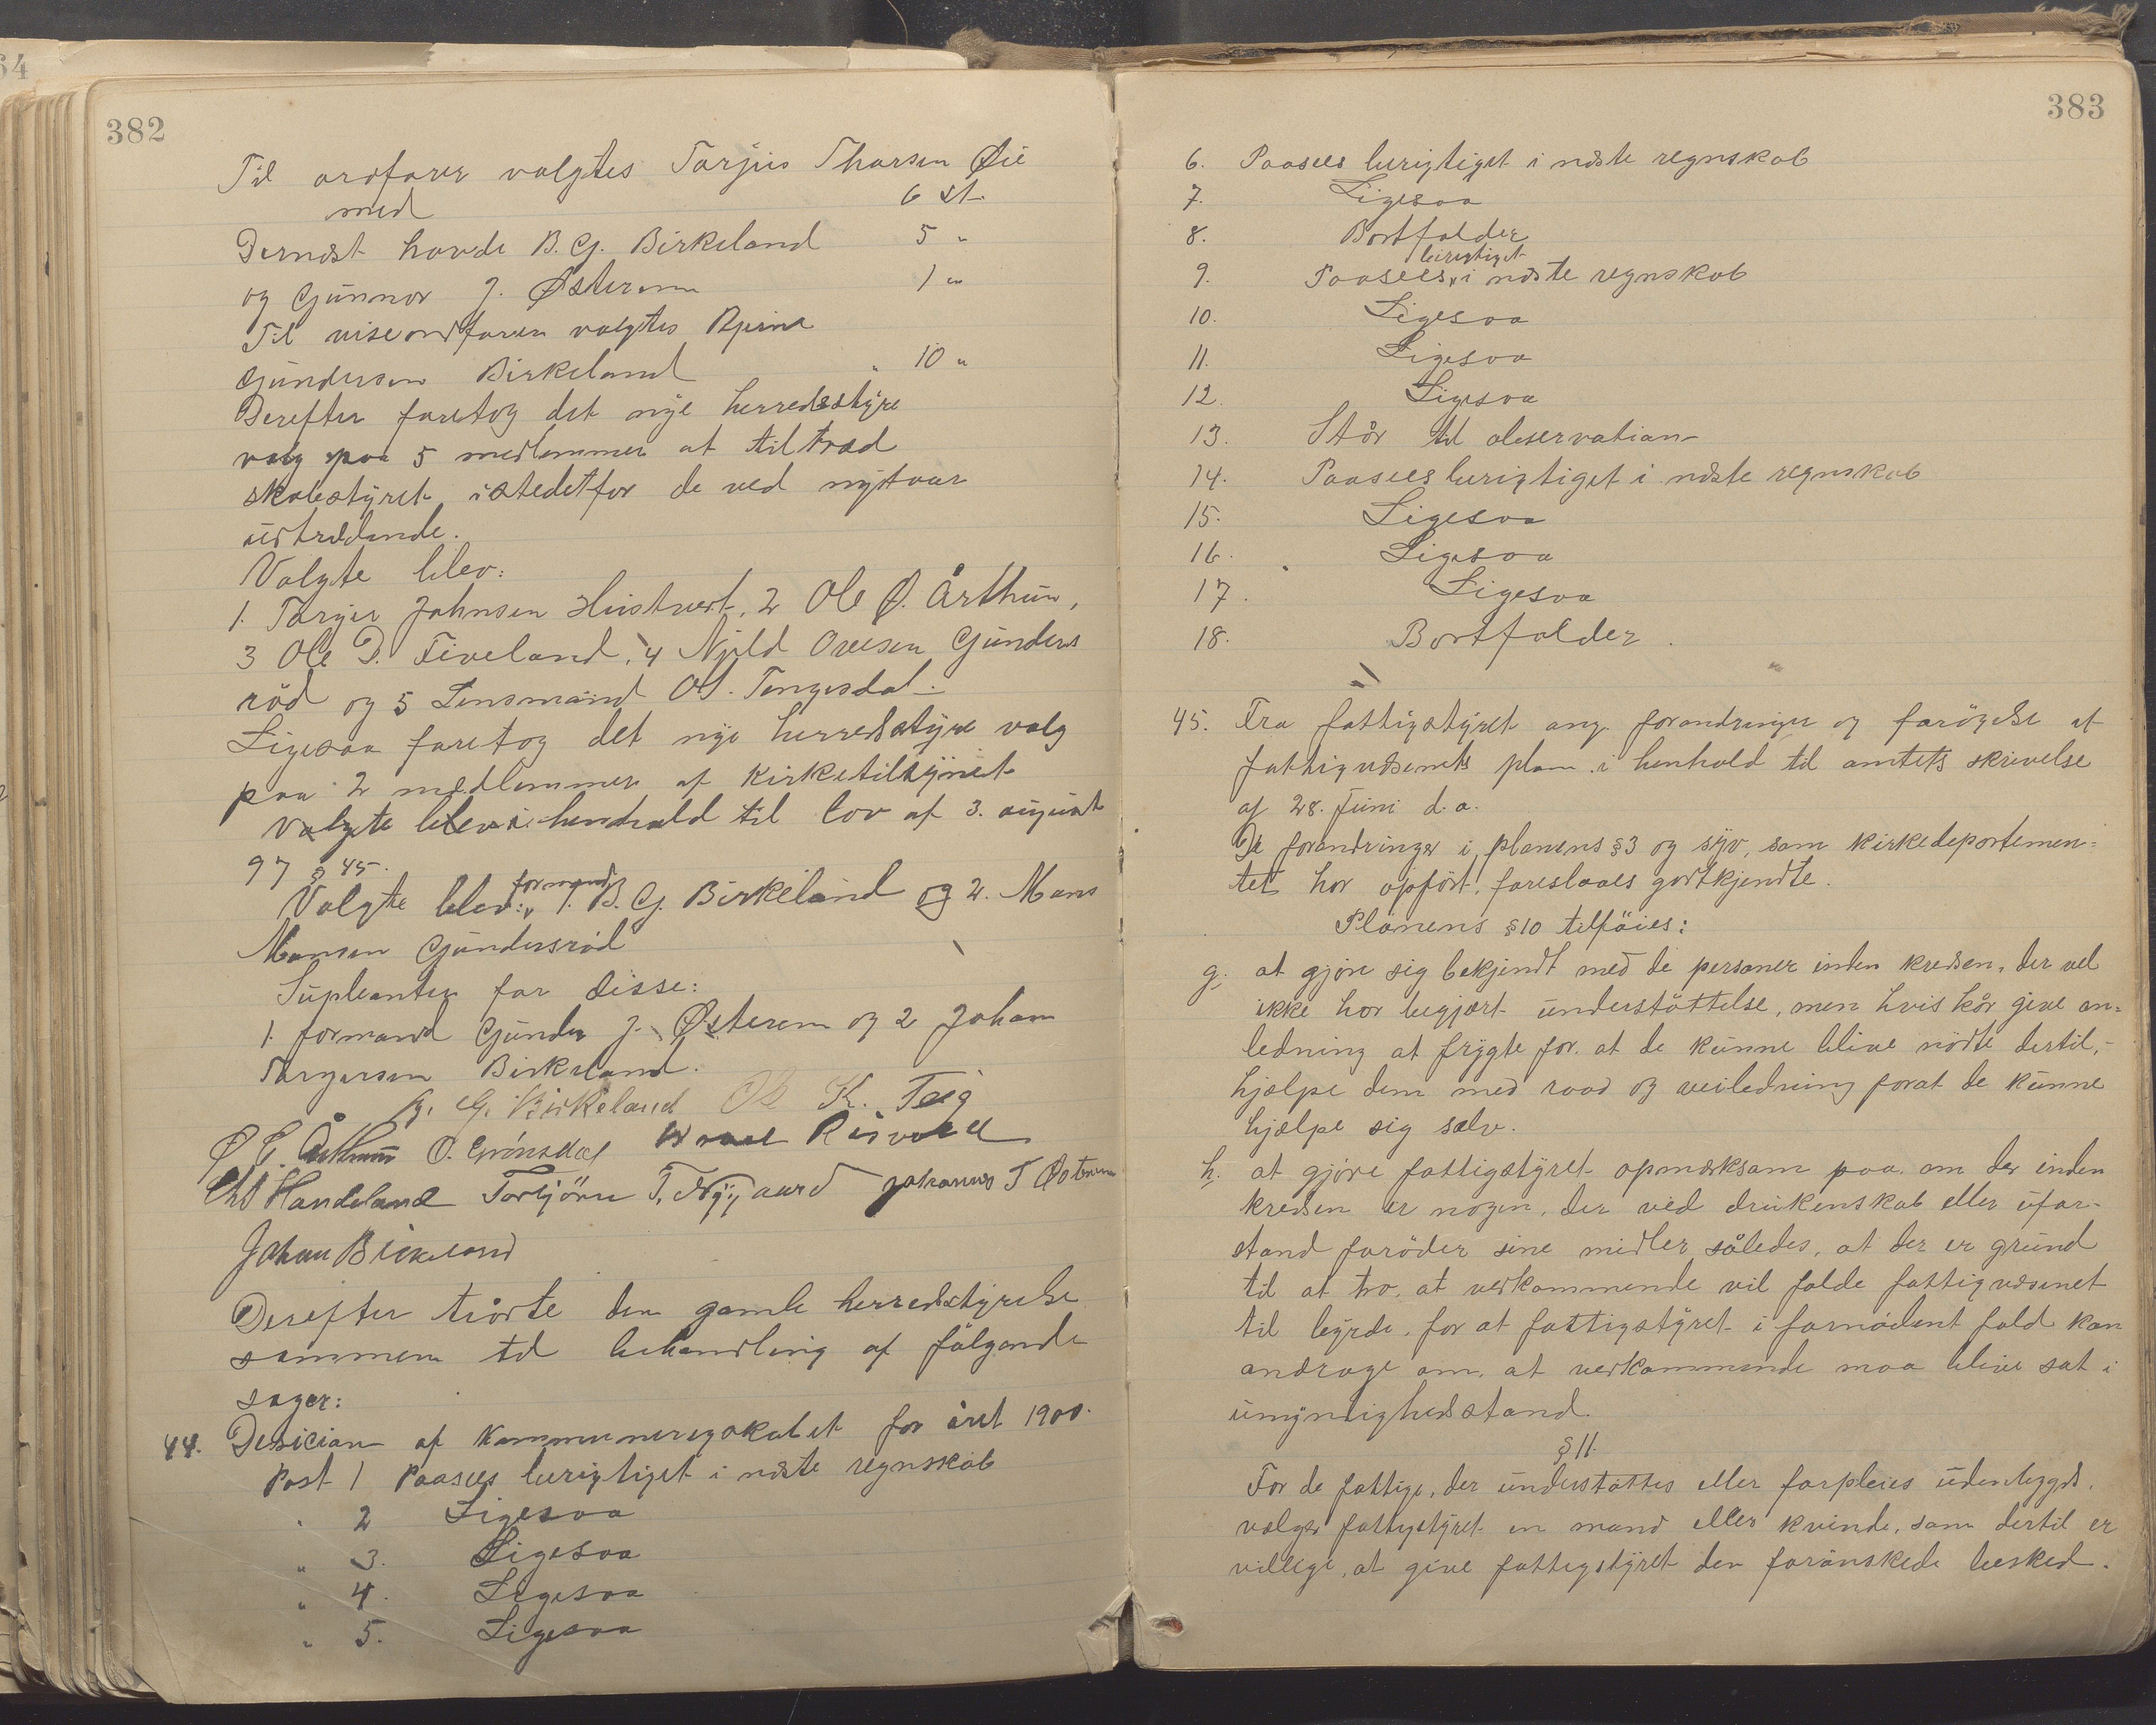 382
Til ordfører valgtes Tarjus Tharsen Øie
med 6 st.
Dernæst havde B. G. Birkeland 5 "
og Gunnar J. Østerem 1 "
Til viseordfører valgtes
Gundersen Birkeland " 10 "
Derefter foretog det nye herredsstyre
valg paa 5 medlemmer at tiltræd
skolestyret istedetfor de ved nytaar
udtrædende.
Valgte blev:
1. Targer Johnsen Hustveit, 2 Ole Ø. Årthun,
3 Ole D. Fiveland, 4 Njeld Ovesen Gunders
rød og 5 Lensmand Ol. Tengesdal.
Ligesaa foretog det nye herredsstyre valg
paa 2 medlemmer af Kirketilsynet
Valgte blev i henhold til lov af 3. august
97 § 45.
Valgte blev: formand 1. B. G. Birkeland og 2. Mons
Monsen Gundersrød
Supleanter for disse:
1. formand Gunder J. Østerem og 2 Johan
Torgersen Birkeland.
B. G. Birkeland Ole K. Teig
Ø G. Årthun O. Grönsdal Risvold
Chr Handeland Torbjörn T. Nygaard Johannes T Østerem
Johan Birkeland
Derefter trådte den gamle herredsstyrelse
sammen til behandling af følgende
sager:
44. Desicion af Kommuneregnskabet for året 1900.
Post 1 Paasees berigtiget i næste regnskab
" 2 Ligesaa
" 3. Ligesaa
" 4. Ligesaa
" 5. Ligesaa
383
6. Paasees berigtiget i næste regnskab
7. Ligesaa
8. Bortfalder
9. Paasees berigtiget i næste regnskab
10. Ligesaa
11. Ligesaa
12. Ligesaa
13. Står til observation
14. Paasees berigtiget i næste regnskab
15. Ligesaa
16. Ligesaa
17. Ligesaa
18. Bortfalder.
45. Fra fattigstyret ang. forandringer og forøgelse af
fattigvæsenets plan i henhold til amtets skrivelse
af 28. Juni d. a.
De forandringer i planens § 3 og syv, som kirkedepartemen=
tet har opført, foreslaaes godtkjendte.
Planens § 10 tilföies:
g. at gjøre sig bekjendt med de personer inden kredsen, der vel
ikke har begjært understöttelse, men hvis kår give an=
ledning at frygte for at de kunne blive nödte dertil,-
hjælpe dem med raad og veiledning forat de kunne
hjælpe sig sælv.
h. at gjöre fattigstyret opmærksom paa om der inden
kredsen er nogen, der ved drukenskab eller ufor-
stand foröder sine midler således, at der er grund
til at tro, at vedkommende vil falde fattigvæsenet
til byrde, for at fattigstyret i fornödent fald kan
andrage om, at vedkommende maa blive sat i
umyndighedsstand.
§ 11.
For de fattige, der understöttes eller forpleies udenbygds,
vælger fattigstyret en mand eller kvinde, som dertil er
villige, at give fattigstyret den forönskede besked.